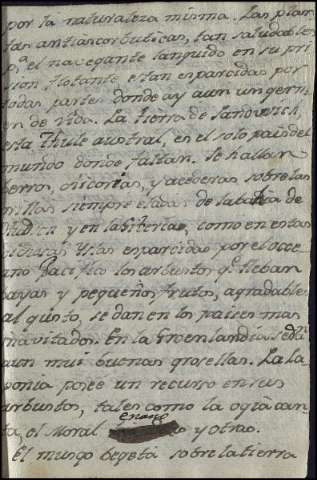 por la naturaleza misma. Las plan-
tas antiascorbuticas, tan saludables
p.ª el navegante languido en su pri
sion flotante, estan esparcidas por
todas partes donde ay aun un germ
en de vida. La tierra de Sandwich,
esta Thule austral, es el solo pais del
mundo donde faltan. Se hallan
berros, chicorias, y acederas sobre las
orillas siempre eladas de la bahia de
Hudson y en la Siberia, como en estas
Islas esparcidas por el occe
ano Pacifico los arbustos q.e lleban
bayas y pequeños frutos, agradables
al gusto, se dan en los paises mas
inavitados. En la Groenlandia se dan
aun mui buenas grosellas. La la
ponia posee un recurso en sus
arbustos, tales como la
el Moral enano y otros.
El musgo begeta sobre la tierra